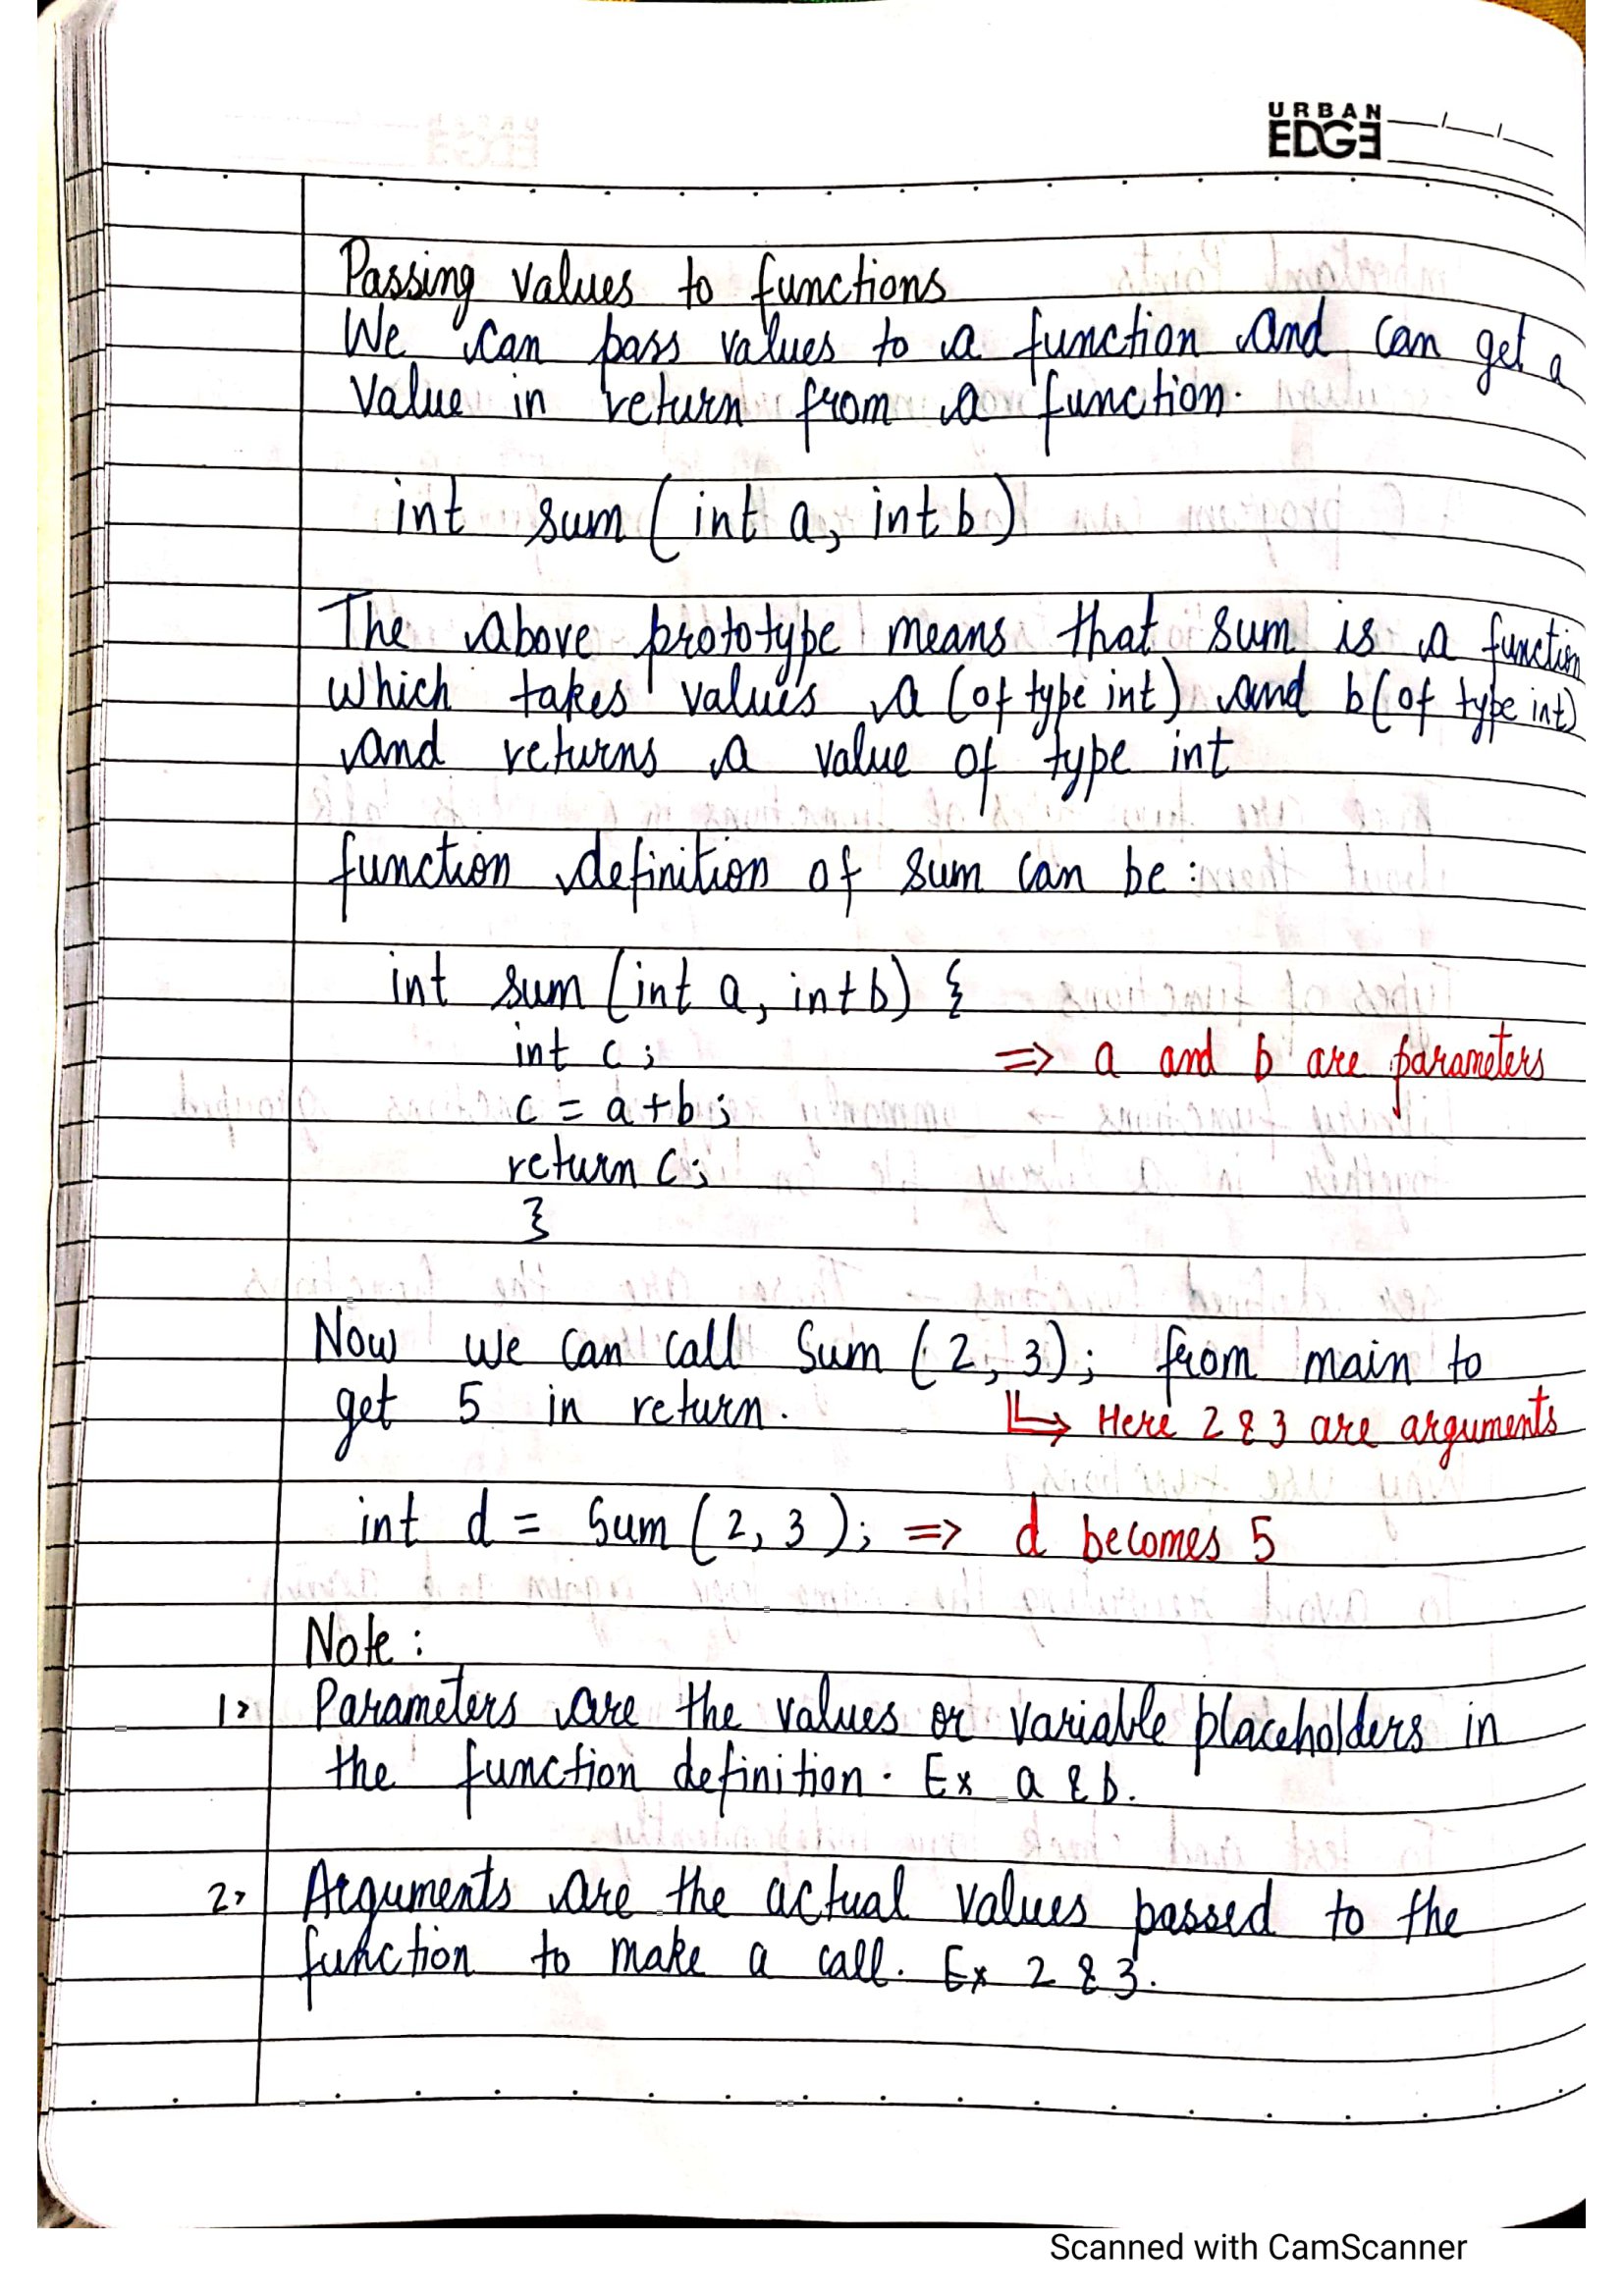 URBAN
EDGE
Passing values to functions
We can pass values to a function and can get a
value in return from a function.
int sum (int a, int b)
The above prototype means that sum is a function
which takes values a (of type int) and b (of type int)
and returns a value of type int
function definition of sum can be :
int sum (int a, int b) {
int c ;
⇒ a and b are parameters
c = a+b ;
return c ;
}
Now we can call Sum (2, 3); from main to
get 5 in return.
↳ Here 2 & 3 are arguments
int d = Sum (2, 3); ⇒ d becomes 5
Note :
1> Parameters are the values or variable placeholders in
the function definition. Ex a & b.
2> Arguments are the actual values passed to the
function to make a call. Ex 2 & 3.
Scanned with CamScanner